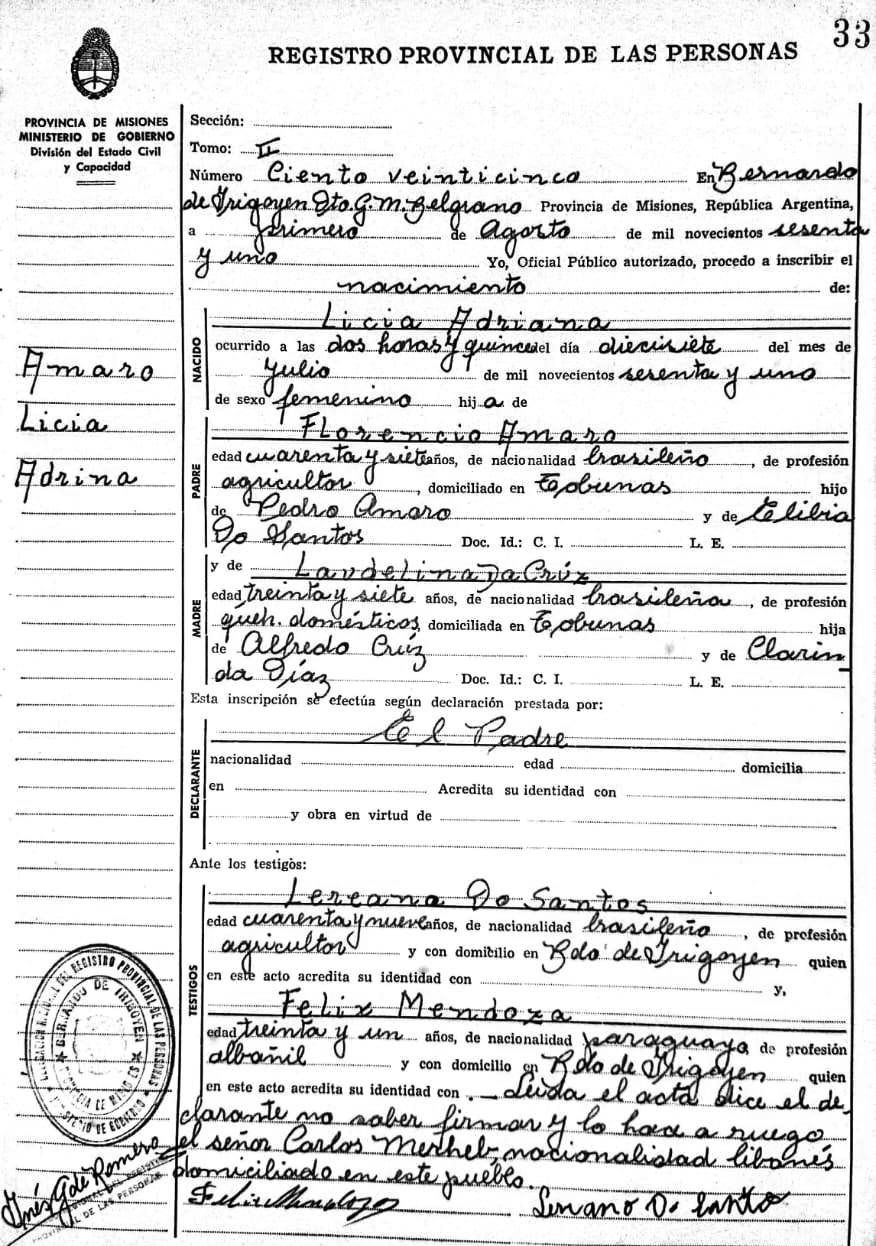 33
REGISTRO PROVINCIAL DE LAS PERSONAS
PROVINCIA DE MISIONES
MINISTERIO DE GOBIERNO
División del Estado Civil
y Capacidad
Amaro
Licia
Adrina
Sección:
Tomo: II
Número Ciento veinticinco En Bernardo
de Yrigoyen Dto. G. M. Belgrano Provincia de Misiones, República Argentina,
a primero de Agosto de mil novecientos sesenta
y uno Yo, Oficial Público autorizado, procedo a inscribir el
nacimiento de:
NACIDO
Licia Adriana
ocurrido a las dos horas y quince del día diecisiete del mes de
Julio de mil novecientos sesenta y uno
de sexo femenino hija de
PADRE
Florencio Amaro
edad cuarenta y siete años, de nacionalidad brasileño, de profesión
agricultor, domiciliado en Tobunas hijo
de Pedro Amaro y de Elibia
Do Santos Doc. Id.: C. I. L. E.
MADRE
y de Laudelina Da Crúz
edad treinta y siete años, de nacionalidad brasileña, de profesión
queh. domésticos, domiciliada en Tobunas hija
de Alfredo Crúz y de Clarin
da Díaz Doc. Id.: C. I. L. E.
Esta inscripción se efectúa según declaración prestada por:
DECLARANTE
El Padre
nacionalidad edad domicilia
en Acredita su identidad con
y obra en virtud de
Ante los testigos:
TESTIGOS
Do Santos
edad cuarenta y nueve años, de nacionalidad brasileño, de profesión
agricultor y con domicilio en Bdo de Yrigoyen quien
en este acto acredita su identidad con y,
Felix Mendoza
edad treinta y un años, de nacionalidad paraguaya, de profesión
albañil y con domicilio en Bdo de Yrigoyen quien
en este acto acredita su identidad con . — Leida el acta dice el de
clarante no saber firmar y lo hace a ruego
el señor Carlos Merheb, nacionalidad libanés
domiciliado en este pueblo.
DEL REGISTRO PROVINCIAL DE LAS PERSONAS
BERNARDO DE IRIGOYEN
PROVINCIA DE MISIONES
MINISTERIO DE GOBIERNO
Inés G. de Romero
DE LAS PERSONAS
Felix Mendoza
Do Santo